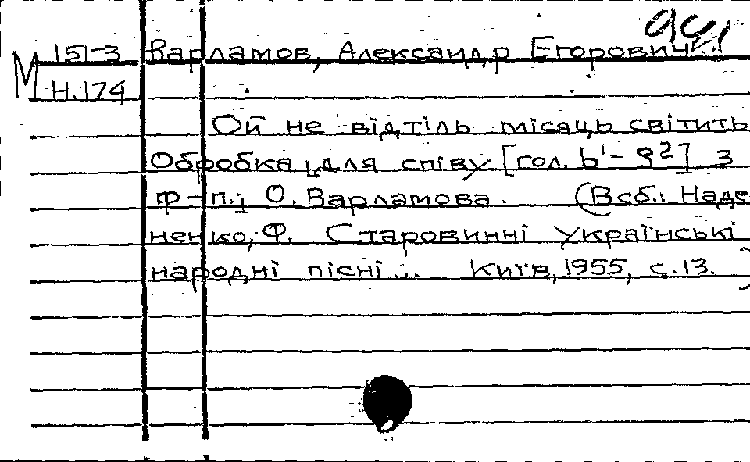 М 151-3 Варламов, Александр Егорович.
Н.174
Ой не відтіль місяць світить
Обробка для співу [гол. b¹ – g²] з
ф-п.; О. Варламова. (В сб.: Наде
ненко, Ф. Старовинні українські
народні пісні... Київ, 1955, с.13.)